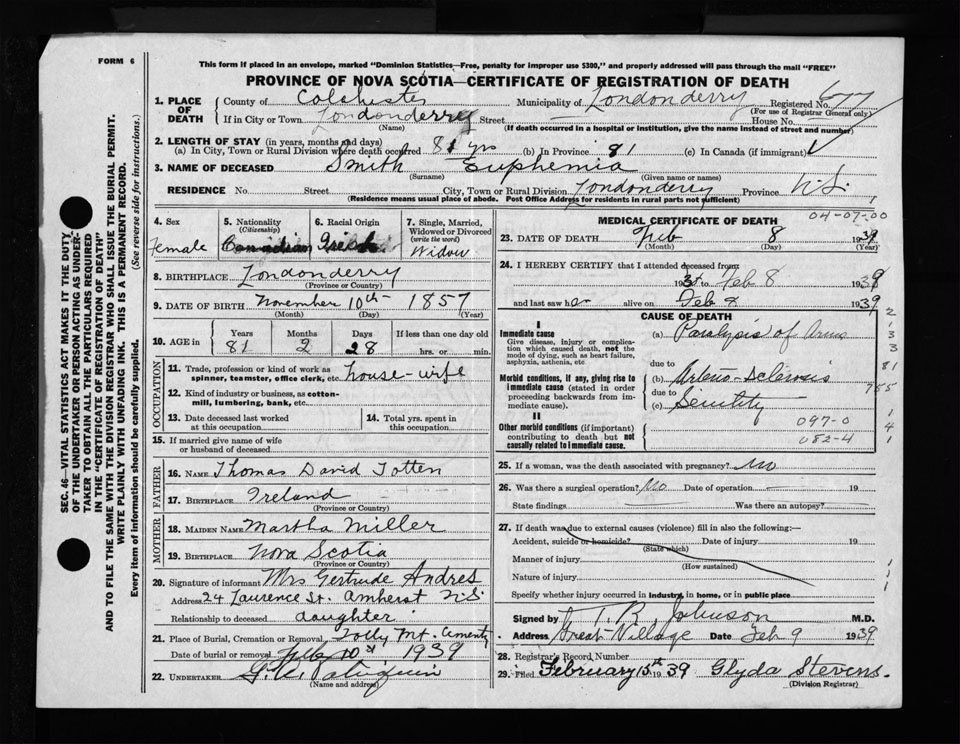 FORM 6
This form if placed in an envelope, marked "Dominion Statistics—Free, penalty for improper use $300," and properly addressed will pass through the mail "FREE"
PROVINCE OF NOVA SCOTIA—CERTIFICATE OF REGISTRATION OF DEATH
SEC. 46—VITAL STATISTICS ACT MAKES IT THE DUTY
OF THE UNDERTAKER OR PERSON ACTING AS UNDER-
TAKER TO OBTAIN ALL THE PARTICULARS REQUIRED
IN THE "CERTIFICATE OF REGISTRATION OF DEATH"
AND TO FILE THE SAME WITH THE DIVISION REGISTRAR WHO SHALL ISSUE THE BURIAL PERMIT.
WRITE PLAINLY WITH UNFADING INK. THIS IS A PERMANENT RECORD.
Every item of information should be carefully supplied. (See reverse side for instructions.)
1. PLACE OF DEATH County of Colchester Municipality of Londonderry Registered No. 677
(For use of Registrar General only)
If in City or Town Londonderry Street — House No.
(Name) (If death occurred in a hospital or institution, give the name instead of street and number)
2. LENGTH OF STAY (in years, months and days)
(a) In City, Town or Rural Division where death occurred 81 yrs (b) In Province 81 (c) In Canada (if immigrant)
3. NAME OF DECEASED Smith Euphemia
(Surname) (Given name or names)
RESIDENCE No. Street City, Town or Rural Division Londonderry Province N.S.
(Residence means usual place of abode. Post Office Address for residents in rural parts not sufficient)
4. Sex 5. Nationality 6. Racial Origin 7. Single, Married,
(Citizenship) Widowed or Divorced
(write the word)
Female Canadian Irish Widow
8. BIRTHPLACE Londonderry
(Province or Country)
9. DATE OF BIRTH November 10th 1857
(Month) (Day) (Year)
10. AGE in Years Months Days If less than one day old
81 2 28 hrs. or min.
OCCUPATION
11. Trade, profession or kind of work as
spinner, teamster, office clerk, etc. house-wife
12. Kind of industry or business, as cotton-
mill, lumbering, bank, etc.
13. Date deceased last worked
at this occupation
14. Total yrs. spent in
this occupation
15. If married give name of wife
or husband of deceased
FATHER
16. NAME Thomas David Totten
17. BIRTHPLACE Ireland
(Province or Country)
MOTHER
18. MAIDEN NAME Martha Miller
19. BIRTHPLACE Nova Scotia
(Province or Country)
20. Signature of informant Mrs Gertrude Andres
Address 24 Laurence St. Amherst N.S.
Relationship to deceased daughter
21. Place of Burial, Cremation or Removal Folly Mt.
Date of burial or removal Feb 10th 1939
22. UNDERTAKER
(Name and address)
04-07-00
MEDICAL CERTIFICATE OF DEATH
23. DATE OF DEATH Feb 8 1939
(Month) (Day) (Year)
24. I HEREBY CERTIFY that I attended deceased from:
193 to Feb 8 1939
and last saw her alive on Feb 8 1939
CAUSE OF DEATH
I
Immediate cause (a) Paralysis of
Give disease, injury or complica-
tion which caused death, not the
mode of dying, such as heart failure,
asphyxia, asthenia, etc
due to
Morbid conditions, if any, giving rise to (b) Arterio-Sclerosis
immediate cause (stated in order
proceeding backwards from im-
mediate cause).
due to
(c) Senility
II
Other morbid conditions (if important)
contributing to death but not
causally related to immediate cause.
097-0
082-4
25. If a woman, was the death associated with pregnancy? No
26. Was there a surgical operation? No Date of operation — 19
State findings — Was there an autopsy?
27. If death was due to external causes (violence) fill in also the following:—
Accident, suicide or homicide? Date of injury 19
(State which)
Manner of injury
(How sustained)
Nature of injury
Specify whether injury occurred in industry, in home, or in public place
Signed by T. R. Johnson M.D.
Address Great Village Date Feb 9 1939
28. Registrar's Record Number
29. Filed February 15th 39 Glyda Stevens.
(Division Registrar)